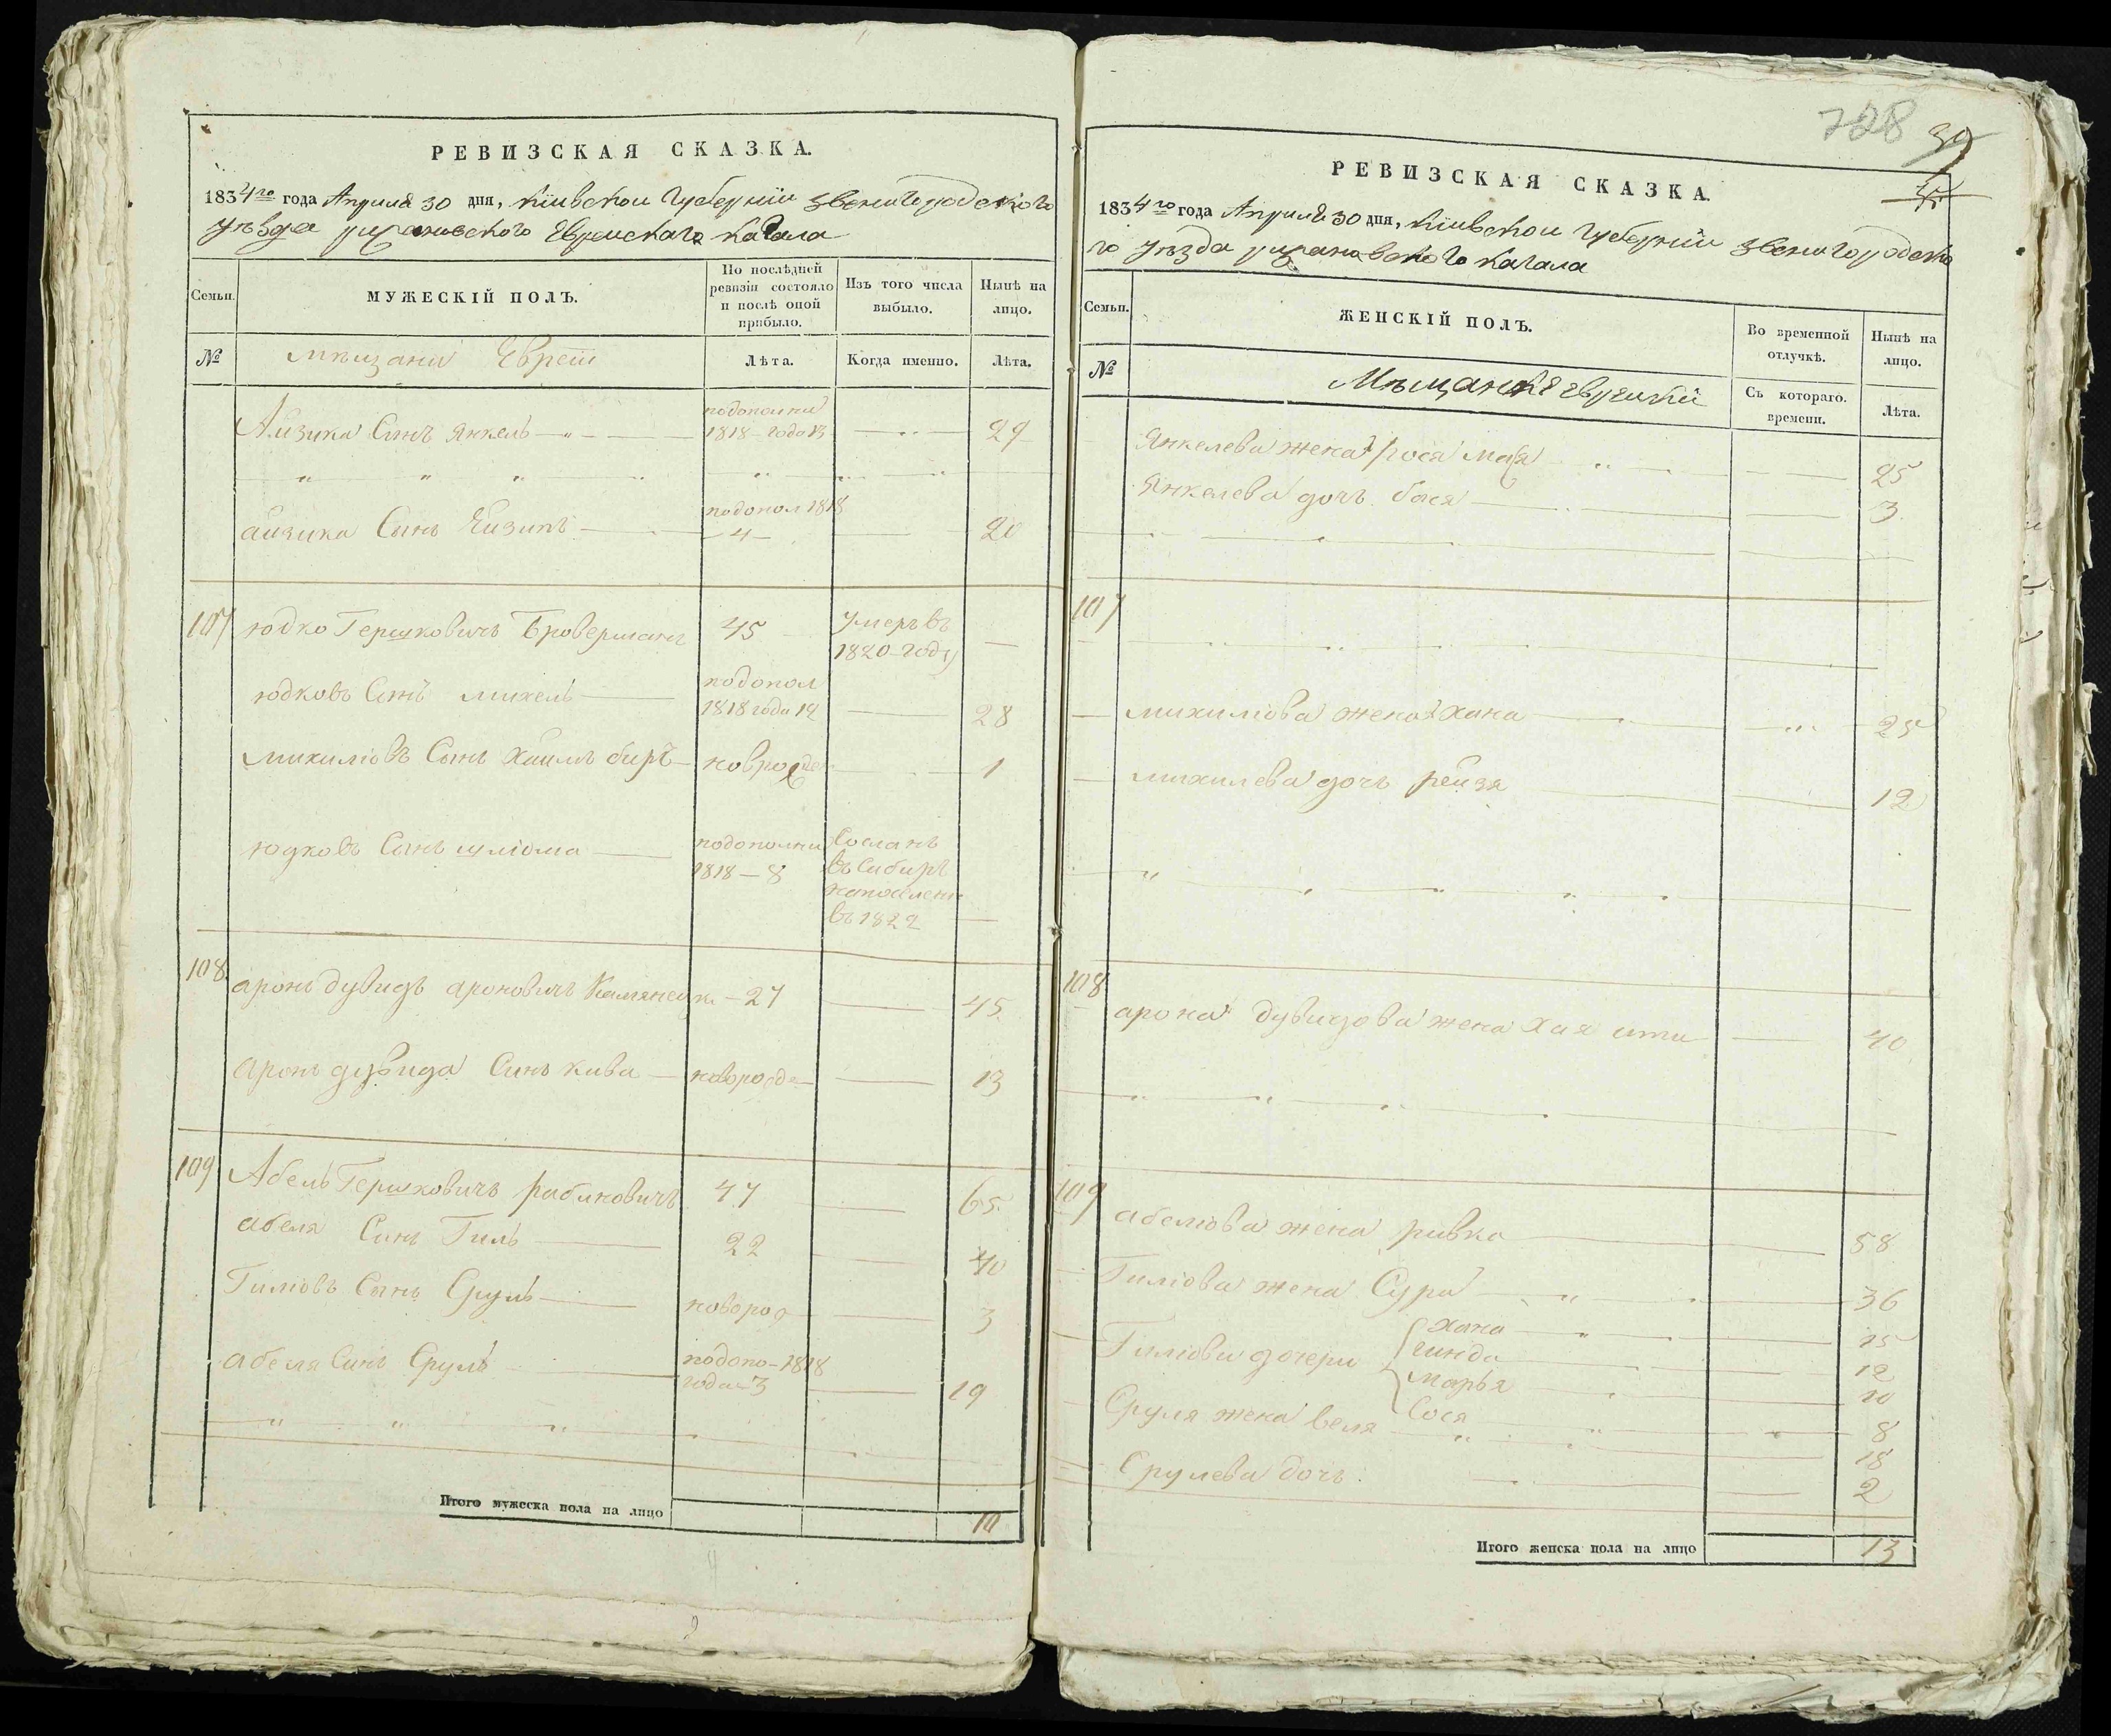 РЕВИЗСКАЯ СКАЗКА.
1834го года Апреля 30 дня, Кіивской Губерніи Звенигородского
уѣзда ризановского Еврейскаго Кагала
Семьи.
МУЖЕСКІЙ ПОЛЪ.
По послѣдней ревизіи состояло и послѣ оной прибыло.
Изъ того числа выбыло.
Нынѣ на лицо.
№
Мѣщани Евреи
Лѣта.
Когда именно.
Лѣта.
Айзика Синъ Янкель 1818 года 13 29
айзика Сынъ подопол 1818 4 20
107 юдко Гершковичъ Броверманъ 45 умеръ въ 1820 году
юдковъ Синъ михель подопол 1818 года 12 28
михиліовъ Сынъ Хаимъ беръ новрожден 1
юдковъ Синъ шліома 1818 - 8 Сосланъ въ Сибиръ въ 1822
108 аронъ дувидъ ароновичъ 27 45
аронъ дувида Синъ кива 13
109 Абель Гершковичъ рабиновичъ 47 65
абеля Синъ Гиль 22 40
Гиліовъ Сынъ Сруль новород 3
абеля Синъ Сруль подопо-1818 года 3 19
Итого мужеска пола на лицо 10
728
РЕВИЗСКАЯ СКАЗКА.
1834го года Апреля 30 дня, Кіивской Губерніи Звенигородско
го уѣзда ризановского Кагала
Семьи.
ЖЕНСКІЙ ПОЛЪ.
Во временной отлучкѣ.
Нынѣ на лицо.
№
Мѣщанкѣ еврейкіи
Съ котораго. времени.
Лѣта.
Янкелева жена рося 25
Янкелева дочъ бася 3
107
михиліова жена Хана 25
михилева дочъ рейзя 12
108 арона дувидова жена Хая ити 40
109 абеліова жена ривка 58
Гиліова жена Сура 36
Гиліови дочери
хана 15
гинда 12
марья 10
Сося 8
Сруля жена веля 18
Срулева дочъ 2
Итого женска пола на лицо 13